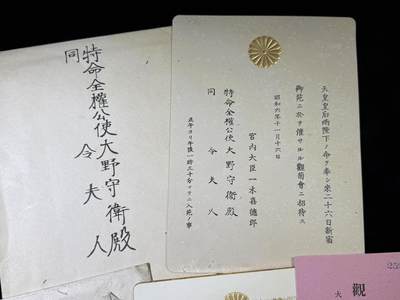 特命全權公使大野守衛殿
同　令夫人
天皇皇后兩陛下ノ命ヲ奉シ來二十六日新宿
御苑ニ於テ催サルル觀菊會ニ招待ス
昭和六年十一月十六日
宮内大臣一木喜德郎
特命全權公使大野守衛殿
同　令夫人
正午ヨリ午後一時三十分マテニ入苑ノ事
觀